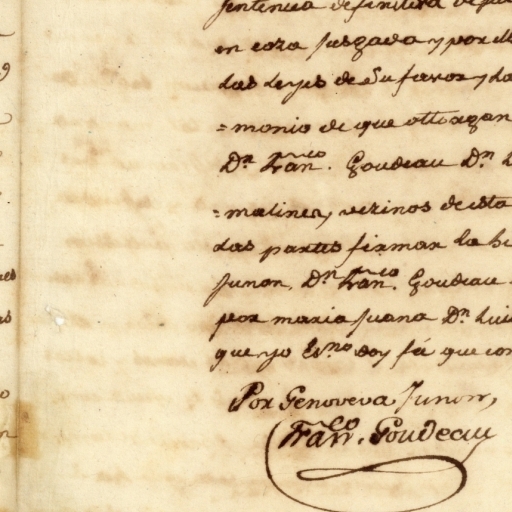 sentencia definitiva de
en coza jusgada y por
las leyes de su favor y
=monio de que otto agan
Dn. Franco. Goudeau Dn.
=matiner, vezinos de esta
las partes firmar la
Junon, Dn. Franco. Goudeau
por maria Juana Dn. Luis
que yo Esno doy fé que
Por Genoveva Junon,
Franco. Goudeau